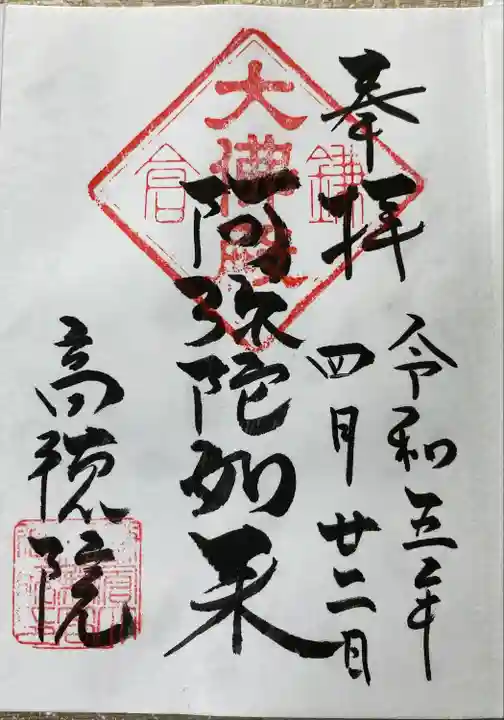 奉拝
令和五年
四月廿二日
鎌倉
大佛殿
阿弥陀如来
高徳院